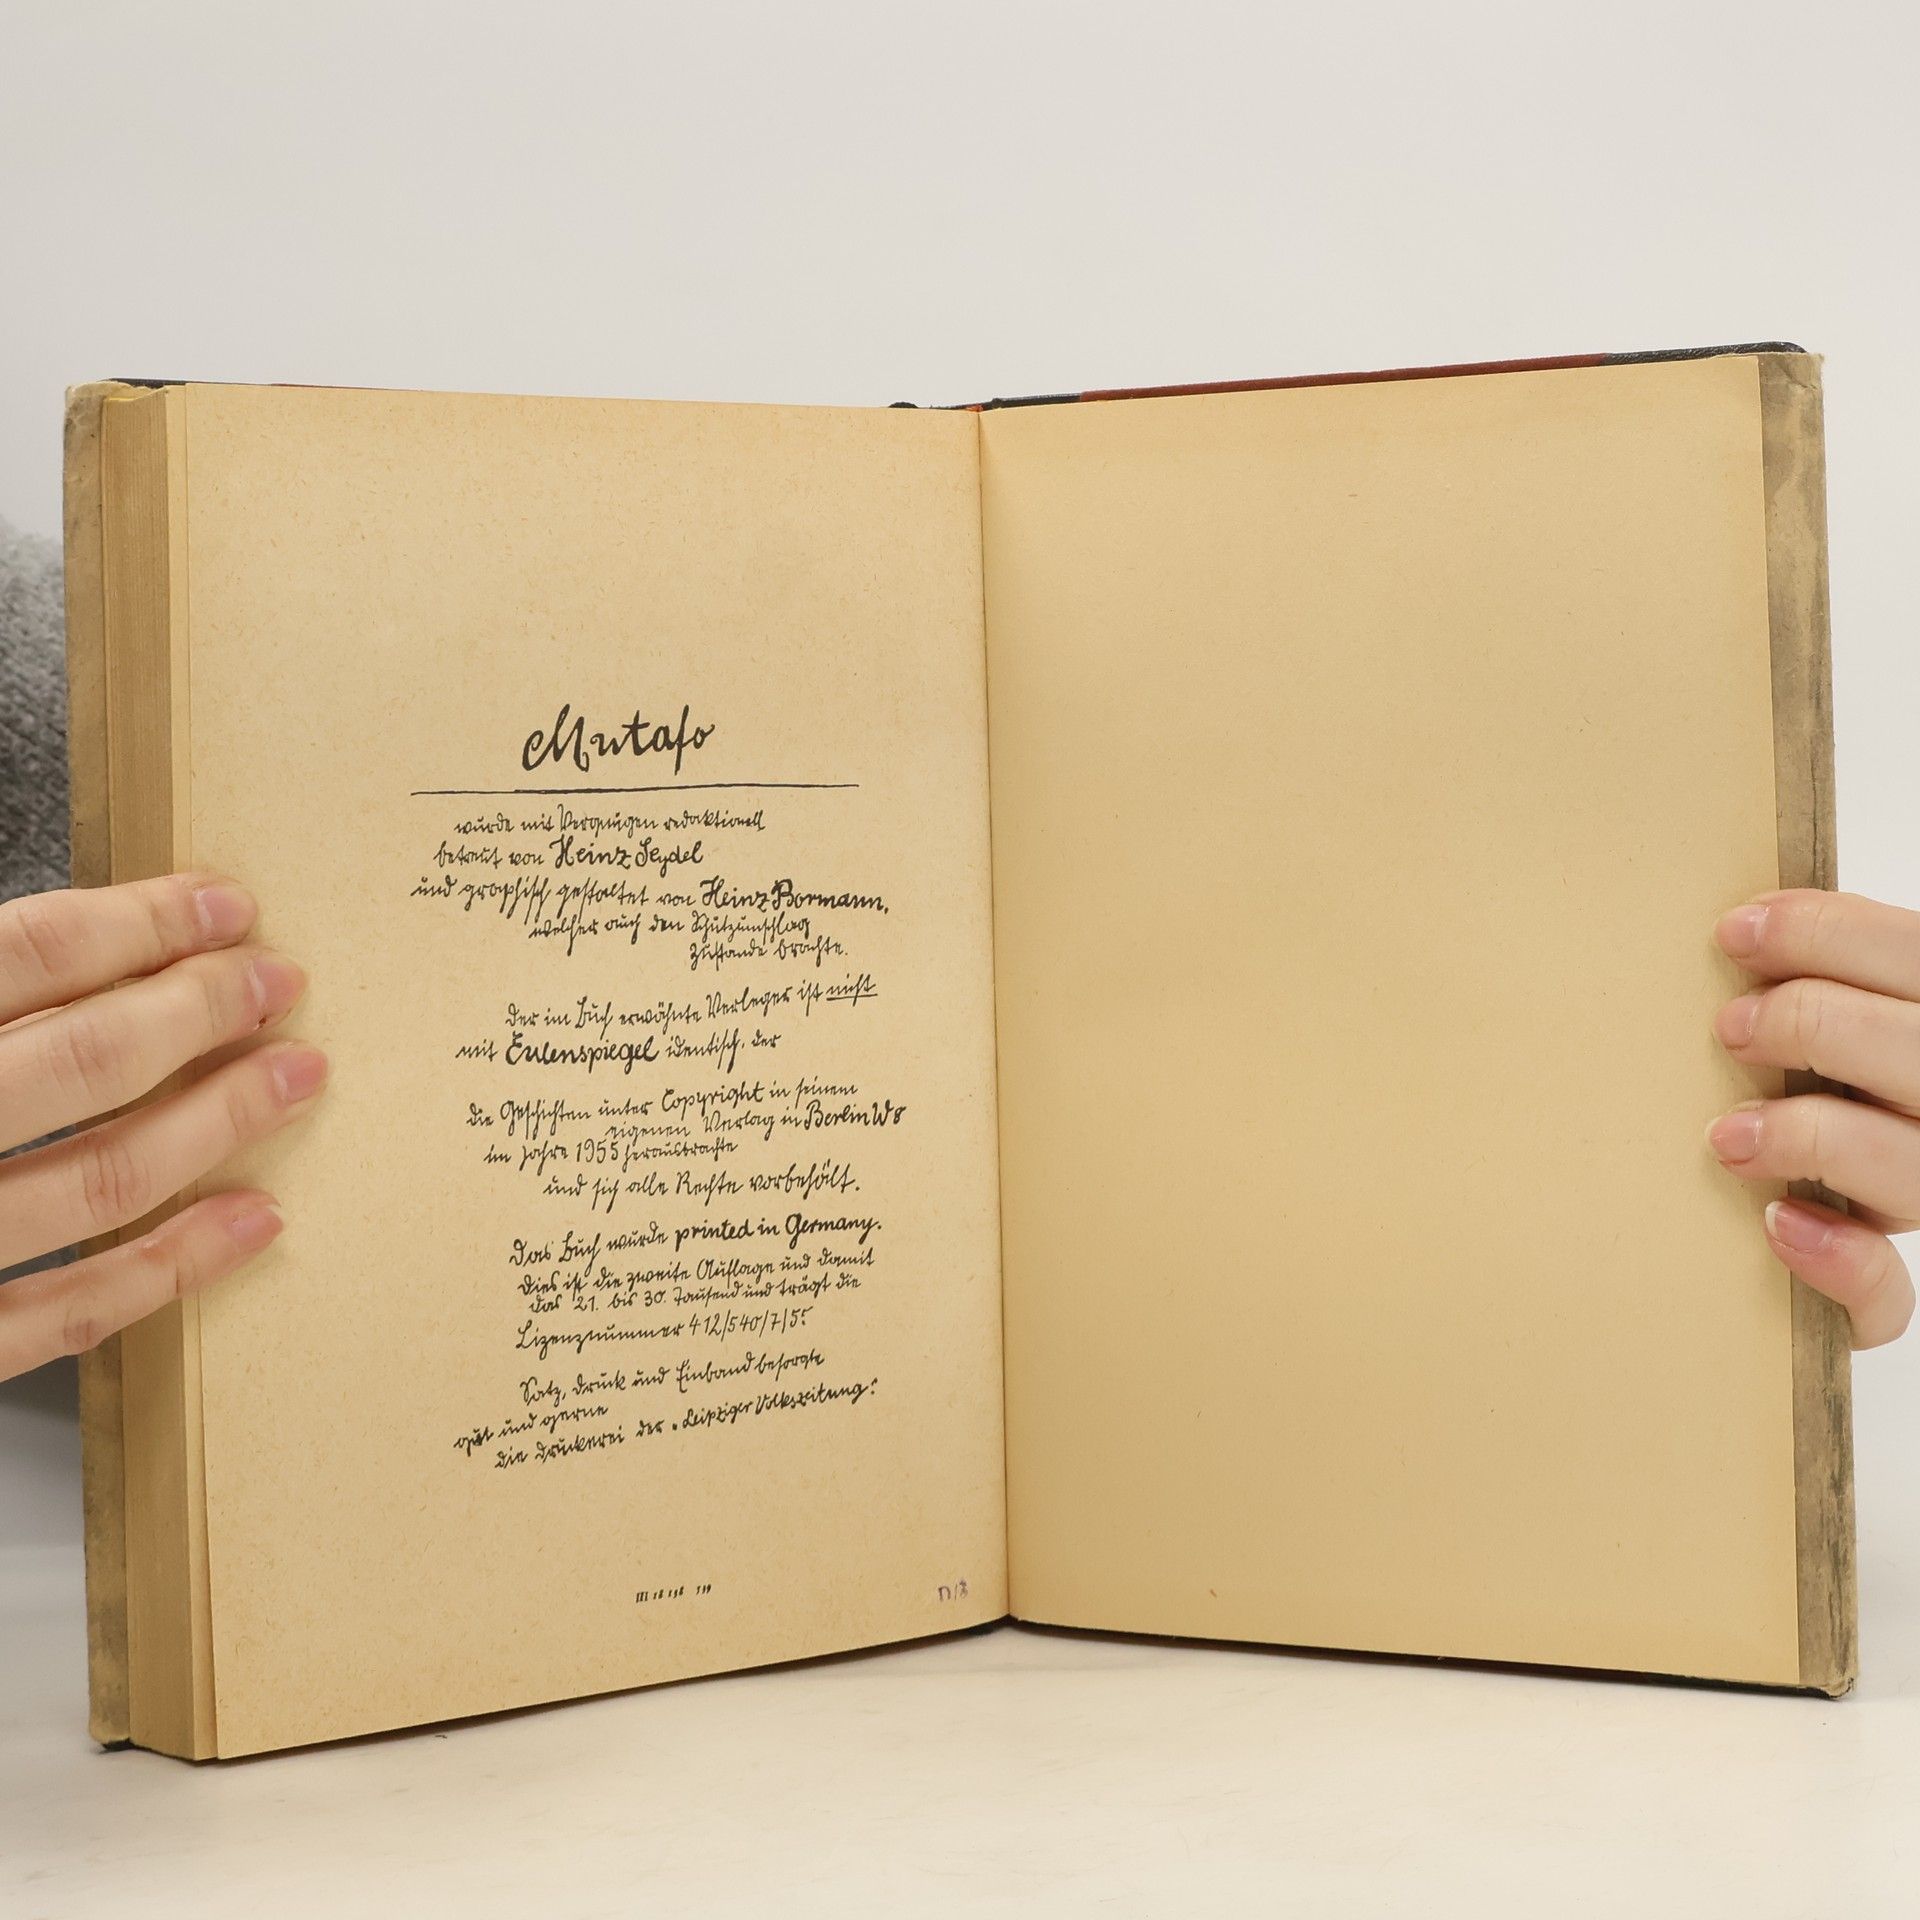 Mutafo
wurde mit Vergnügen redaktionell
betreut von Heinz Seydel
und graphisch gestaltet von Heinz Bormann,
welcher auch den Schutzumschlag
zustande brachte.
Der im Buch erwähnte Verleger ist nicht
mit Eulenspiegel identisch, der
die Geschichten unter Copyright in seinem
eigenen Verlag in Berlin W 8
im Jahre 1955 herausbrachte
und sich alle Rechte vorbehält.
Das Buch wurde printed in Germany.
Dies ist die zweite Auflage und damit
das 21. bis 30. Tausend und trägt die
Lizenznummer 412/540/7/55
Satz, Druck und Einband besorgte
gut und gerne
die Druckerei der „Leipziger Volkszeitung“
III 18 138